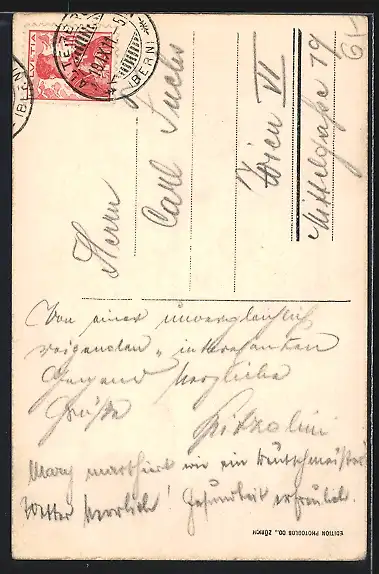 HELVETIA
(BERN)
Herrn
Carl Fuchs
Wien VI
Mittelgasse 19
Von einer unvergleichlich
reizenden, interessanten
Gegend herzliche
Grüße
Mary marschiert wie ein Deutschmeister!
Wetter herrlich! Gesundheit erfreulich.
EDITION PHOTOGLOB CO., ZÜRICH